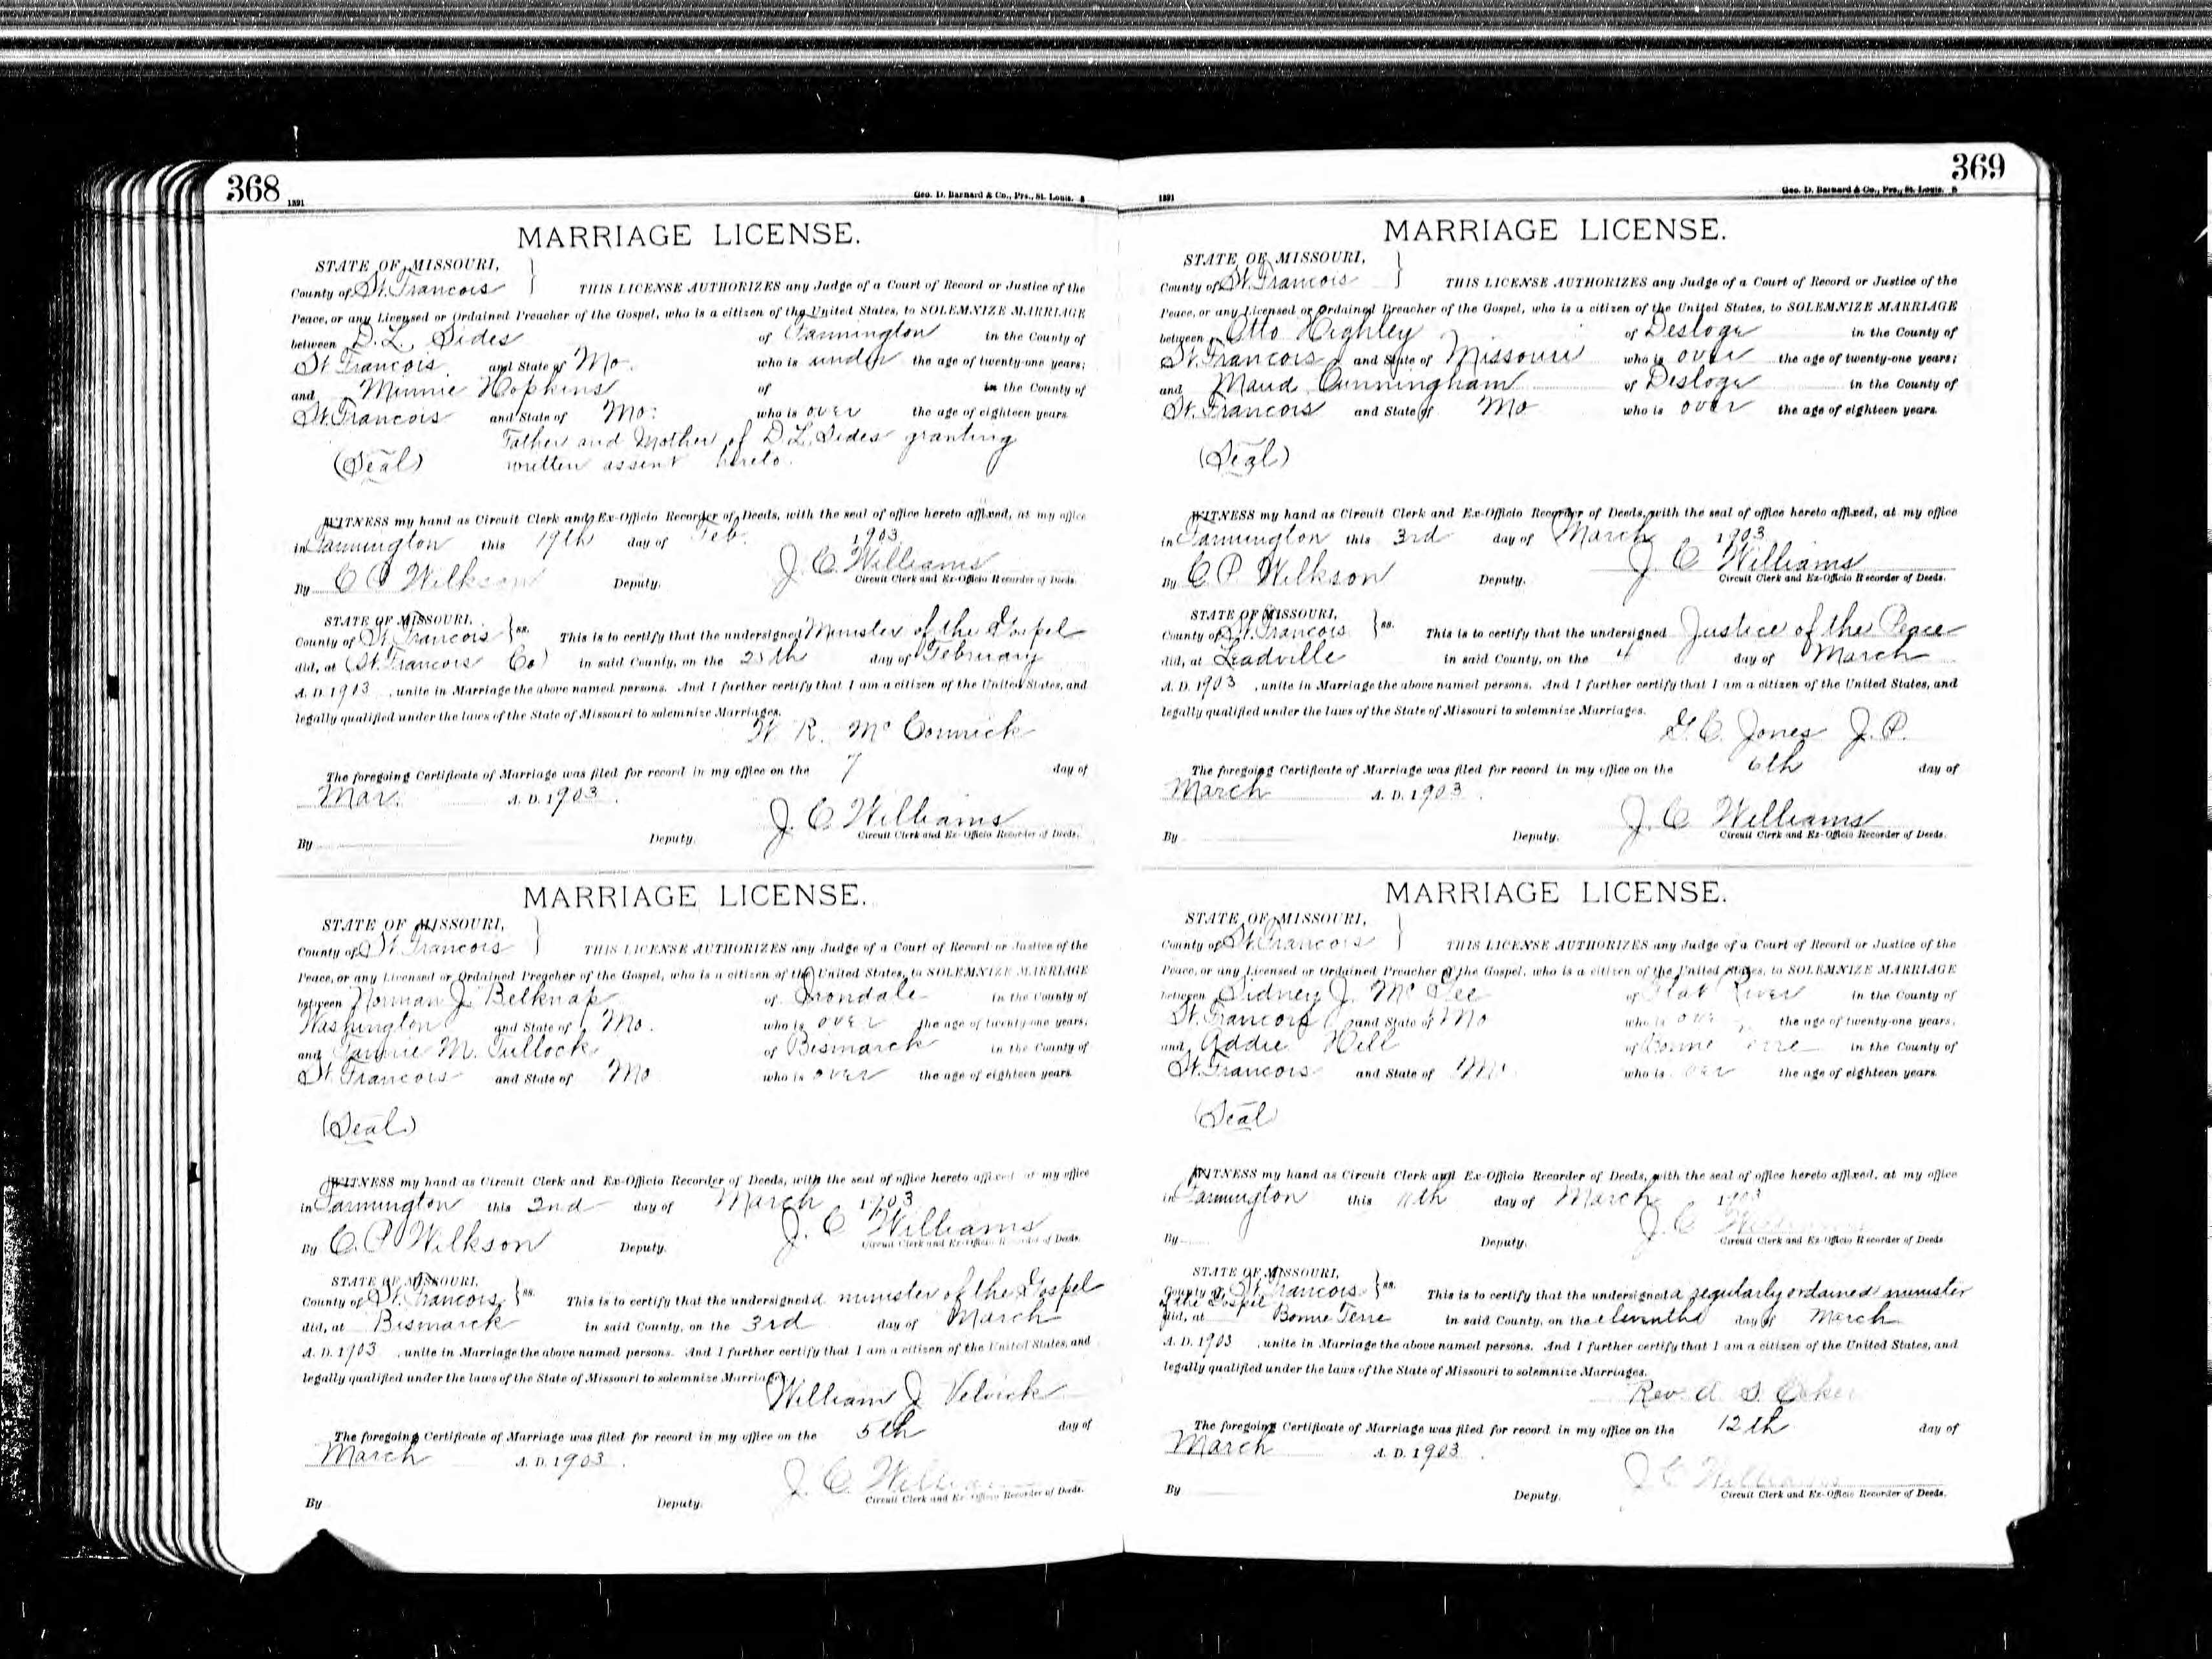 368
1891
Geo. D. Barnard & Co., Prs., St. Louis. 8
MARRIAGE LICENSE.
STATE OF MISSOURI,
County of St. Francois } THIS LICENSE AUTHORIZES any Judge of a Court of Record or Justice of the
Peace, or any Licensed or Ordained Preacher of the Gospel, who is a citizen of the United States, to SOLEMNIZE MARRIAGE
between D. L. Sides of Farmington in the County of
St Francois and State of Mo. who is under the age of twenty-one years;
and Minnie Hopkins of in the County of
St. Francois and State of Mo: who is over the age of eighteen years
Father and Mother of D L. Sides granting
(Seal) written assent hereto.
WITNESS my hand as Circuit Clerk and Ex-Officio Recorder of Deeds, with the seal of office hereto affixed, at my office
in Farmington this 19th day of Feb. 1903.
By C P Wilkson Deputy. J. C. Williams
Circuit Clerk and Ex-Officio Recorder of Deeds.
STATE OF MISSOURI,
County of St. Francois } ss. This is to certify that the undersigned Minister of the Gospel
did, at (St. Francois Co) in said County, on the 25th day of February
A. D. 1903, unite in Marriage the above named persons. And I further certify that I am a citizen of the United States, and
legally qualified under the laws of the State of Missouri to solemnize Marriages.
W R. Mc Cormick
The foregoing Certificate of Marriage was filed for record in my office on the 7 day of
Mar. A. D. 1903.
By Deputy. J. C Williams
Circuit Clerk and Ex-Officio Recorder of Deeds.
MARRIAGE LICENSE.
STATE OF MISSOURI,
County of St. Francois } THIS LICENSE AUTHORIZES any Judge of a Court of Record or Justice of the
Peace, or any Licensed or Ordained Preacher of the Gospel, who is a citizen of the United States, to SOLEMNIZE MARRIAGE
between Norman J. Belknap of Irondale in the County of
Washington and State of Mo. who is over the age of twenty-one years;
and Fannie M. Tullock of Bismarck in the County of
St. Francois and State of Mo who is over the age of eighteen years.
(Seal)
WITNESS my hand as Circuit Clerk and Ex-Officio Recorder of Deeds, with the seal of office hereto affixed at my office
in Farmington this 2nd day of March 1903
By C. P Wilkson Deputy. J. C Williams
Circuit Clerk and Ex-Officio Recorder of Deeds.
STATE OF MISSOURI,
County of St. Francois } ss. This is to certify that the undersigned a minister of the Gospel
did, at Bismarck in said County, on the 3rd day of March
A. D. 1903, unite in Marriage the above named persons. And I further certify that I am a citizen of the United States, and
legally qualified under the laws of the State of Missouri to solemnize Marriages.
William J Velvick
The foregoing Certificate of Marriage was filed for record in my office on the 5th day of
March A. D. 1903.
By Deputy. J. C. Williams
Circuit Clerk and Ex-Officio Recorder of Deeds.
369
1891
Geo. D. Barnard & Co., Prs., St. Louis. 8
MARRIAGE LICENSE.
STATE OF MISSOURI,
County of St. Francois } THIS LICENSE AUTHORIZES any Judge of a Court of Record or Justice of the
Peace, or any Licensed or Ordained Preacher of the Gospel, who is a citizen of the United States, to SOLEMNIZE MARRIAGE
between Otto Highley of Desloge in the County of
St. Francois and State of Missouri who is over the age of twenty-one years;
and Maud Cunningham of Desloge in the County of
St. Francois and State of Mo who is over the age of eighteen years.
(Seal)
WITNESS my hand as Circuit Clerk and Ex-Officio Recorder of Deeds, with the seal of office hereto affixed, at my office
in Farmington this 3rd day of March 1903
By C P. Wilkson Deputy. J. C Williams
Circuit Clerk and Ex-Officio Recorder of Deeds.
STATE OF MISSOURI,
County of St. Francois } ss. This is to certify that the undersigned Justice of the Peace
did, at Leadville in said County, on the 4 day of March
A. D. 1903, unite in Marriage the above named persons. And I further certify that I am a citizen of the United States, and
legally qualified under the laws of the State of Missouri to solemnize Marriages.
G. C. Jones J. P.
The foregoing Certificate of Marriage was filed for record in my office on the 6th day of
March A. D. 1903.
By Deputy. J. C Williams
Circuit Clerk and Ex-Officio Recorder of Deeds.
MARRIAGE LICENSE.
STATE OF MISSOURI,
County of St. Francois } THIS LICENSE AUTHORIZES any Judge of a Court of Record or Justice of the
Peace, or any Licensed or Ordained Preacher of the Gospel, who is a citizen of the United States, to SOLEMNIZE MARRIAGE
between Sidney J. McGee of Flat River in the County of
St. Francois and State of Mo who is over the age of twenty-one years,
and Addie Hill of Bonne Terre in the County of
St. Francois and State of Mo who is over the age of eighteen years.
(Seal)
WITNESS my hand as Circuit Clerk and Ex-Officio Recorder of Deeds, with the seal of office hereto affixed, at my office
in Farmington this 11th day of March 1903
By Deputy. J. C Williams
Circuit Clerk and Ex-Officio Recorder of Deeds
STATE OF MISSOURI,
County of St. Francois } ss. This is to certify that the undersigned a regularly ordained minister
of the Gospel
did, at Bonne Terre in said County, on the eleventh day of March
A. D. 1903, unite in Marriage the above named persons. And I further certify that I am a citizen of the United States, and
legally qualified under the laws of the State of Missouri to solemnize Marriages.
Rev. A. S. Coker
The foregoing Certificate of Marriage was filed for record in my office on the 12th day of
March A. D. 1903.
By Deputy. J C Williams
Circuit Clerk and Ex-Officio Recorder of Deeds.